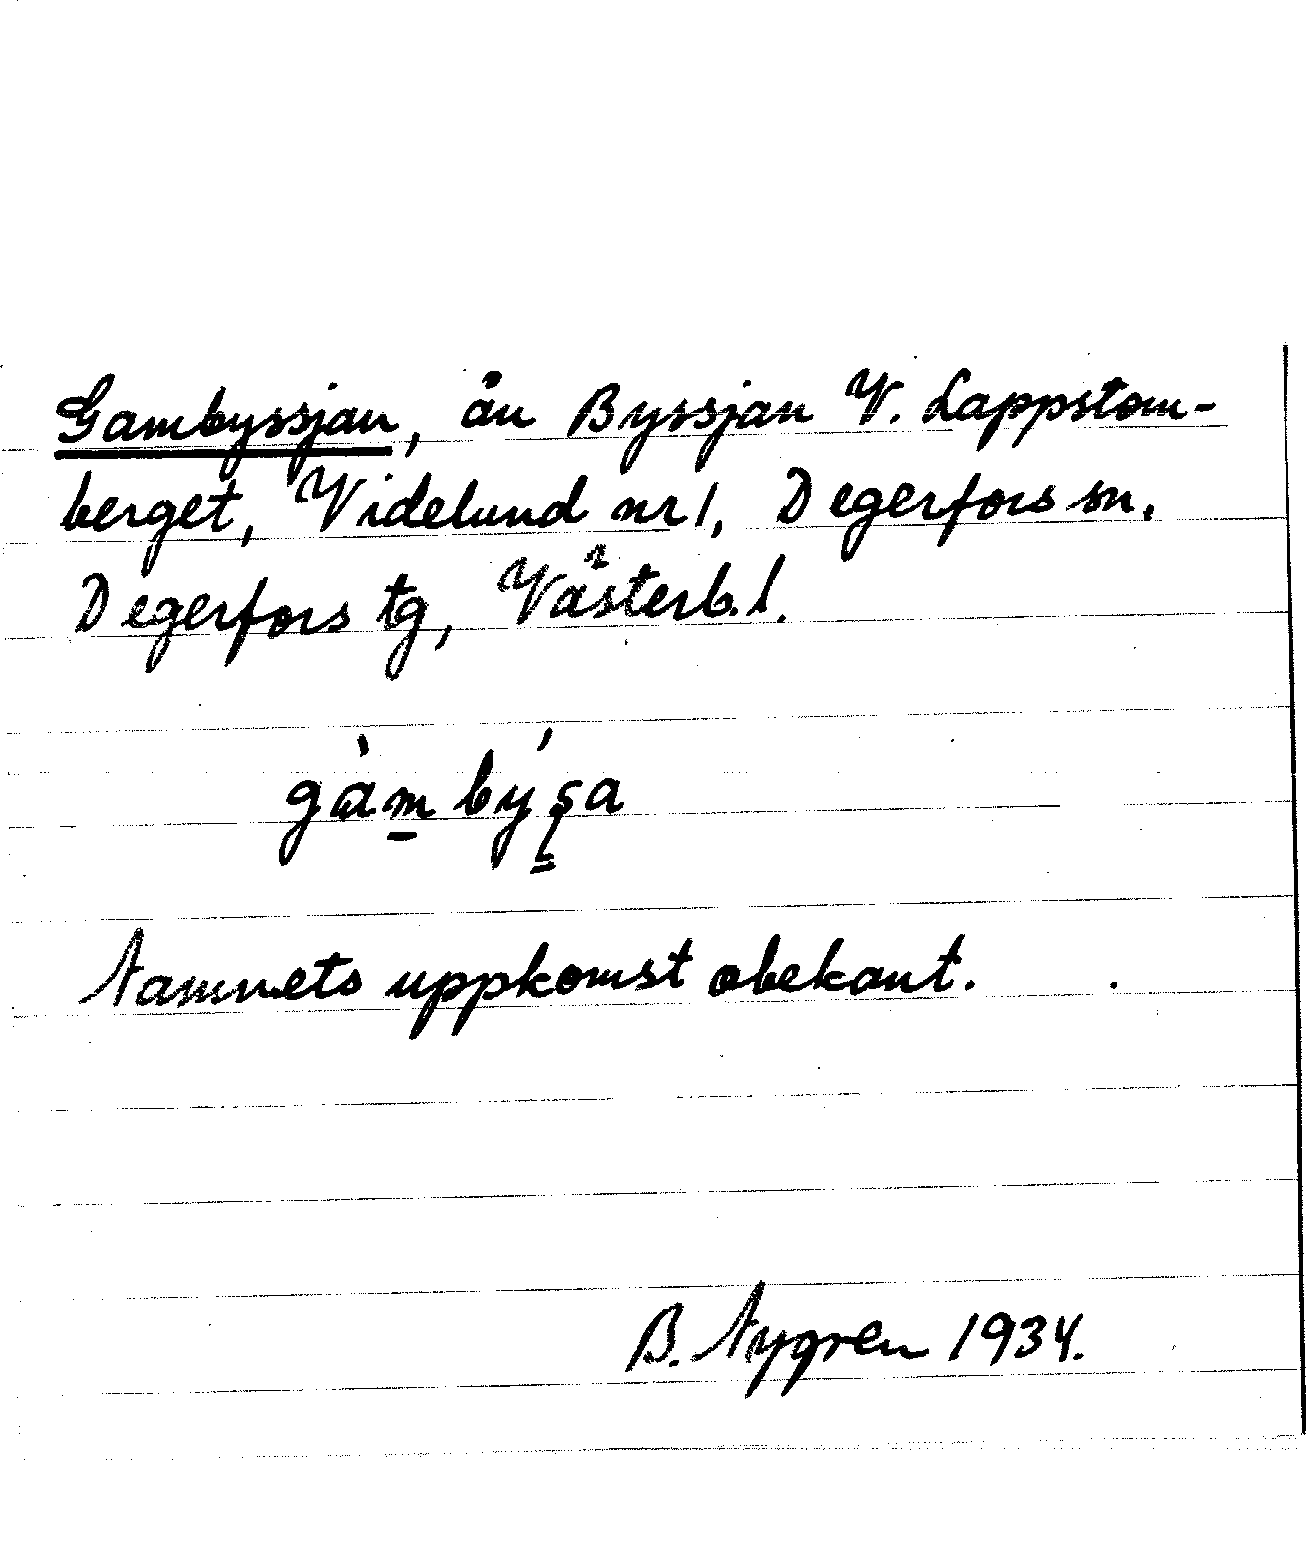 Gambyssjan, ån Byssjan V. Lappstom-
berget, Videlund nr 1, Degerfors sn.
Degerfors tg, Västerb. l.
gàm̱býʂa
Namnets uppkomst obekant.
B. Nygren 1934.